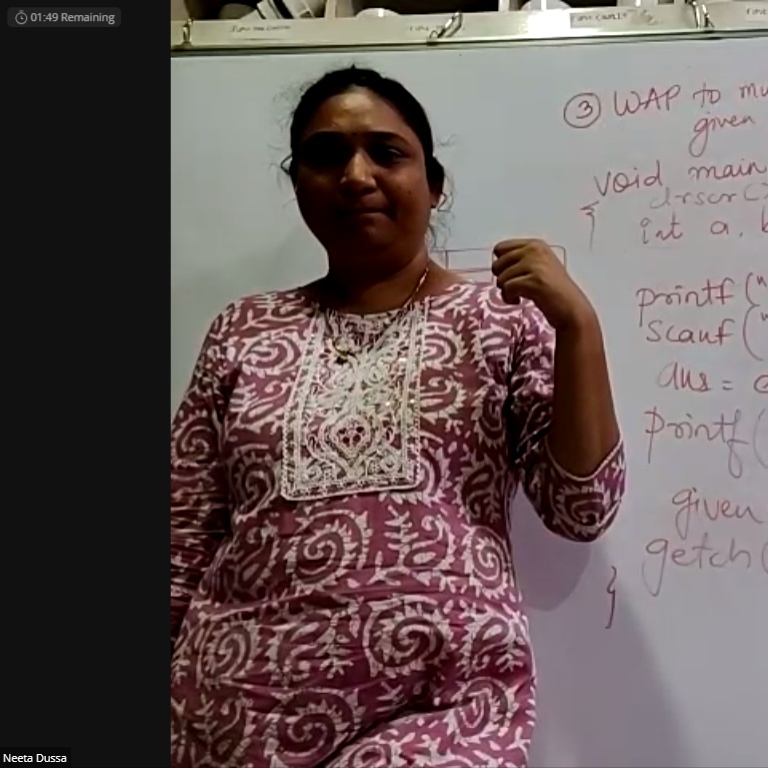 01:49 Remaining
③ WAP to mu
given
void main
clrscr()
{ int a, b
printf("
scanf("
ans = a
printf(
given
getch(
}
Neeta Dussa